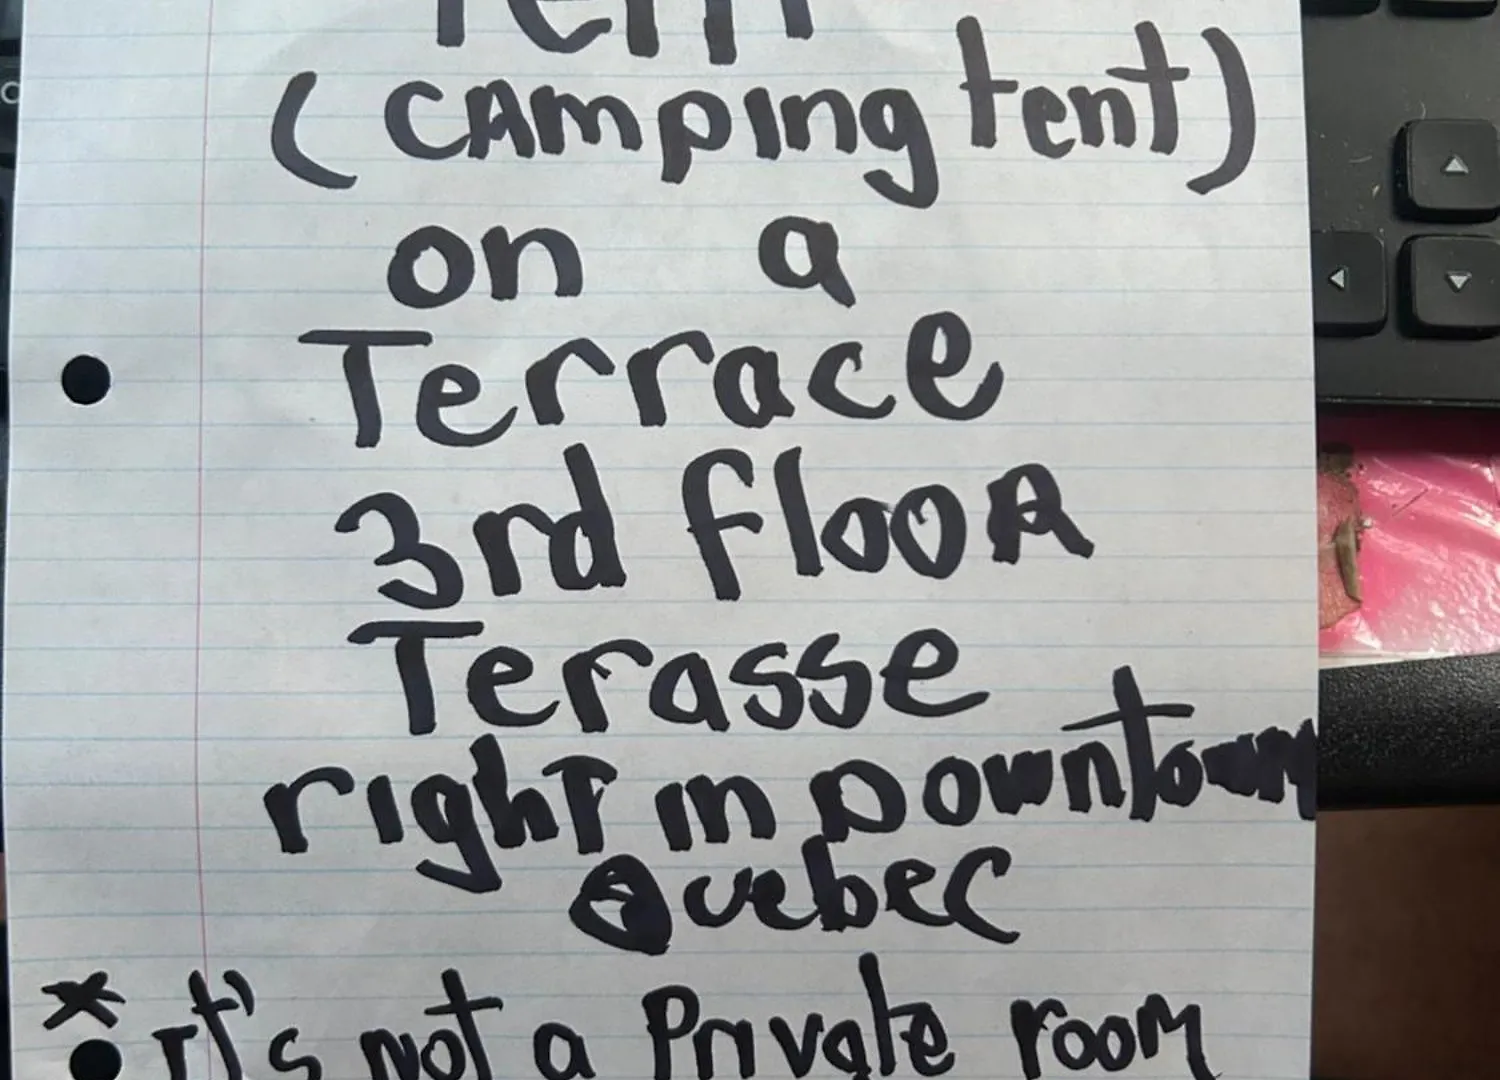 Tent
(camping tent)
on a
Terrace
3rd floor
Terasse
right in Downtown
Quebec
* it's not a Private room